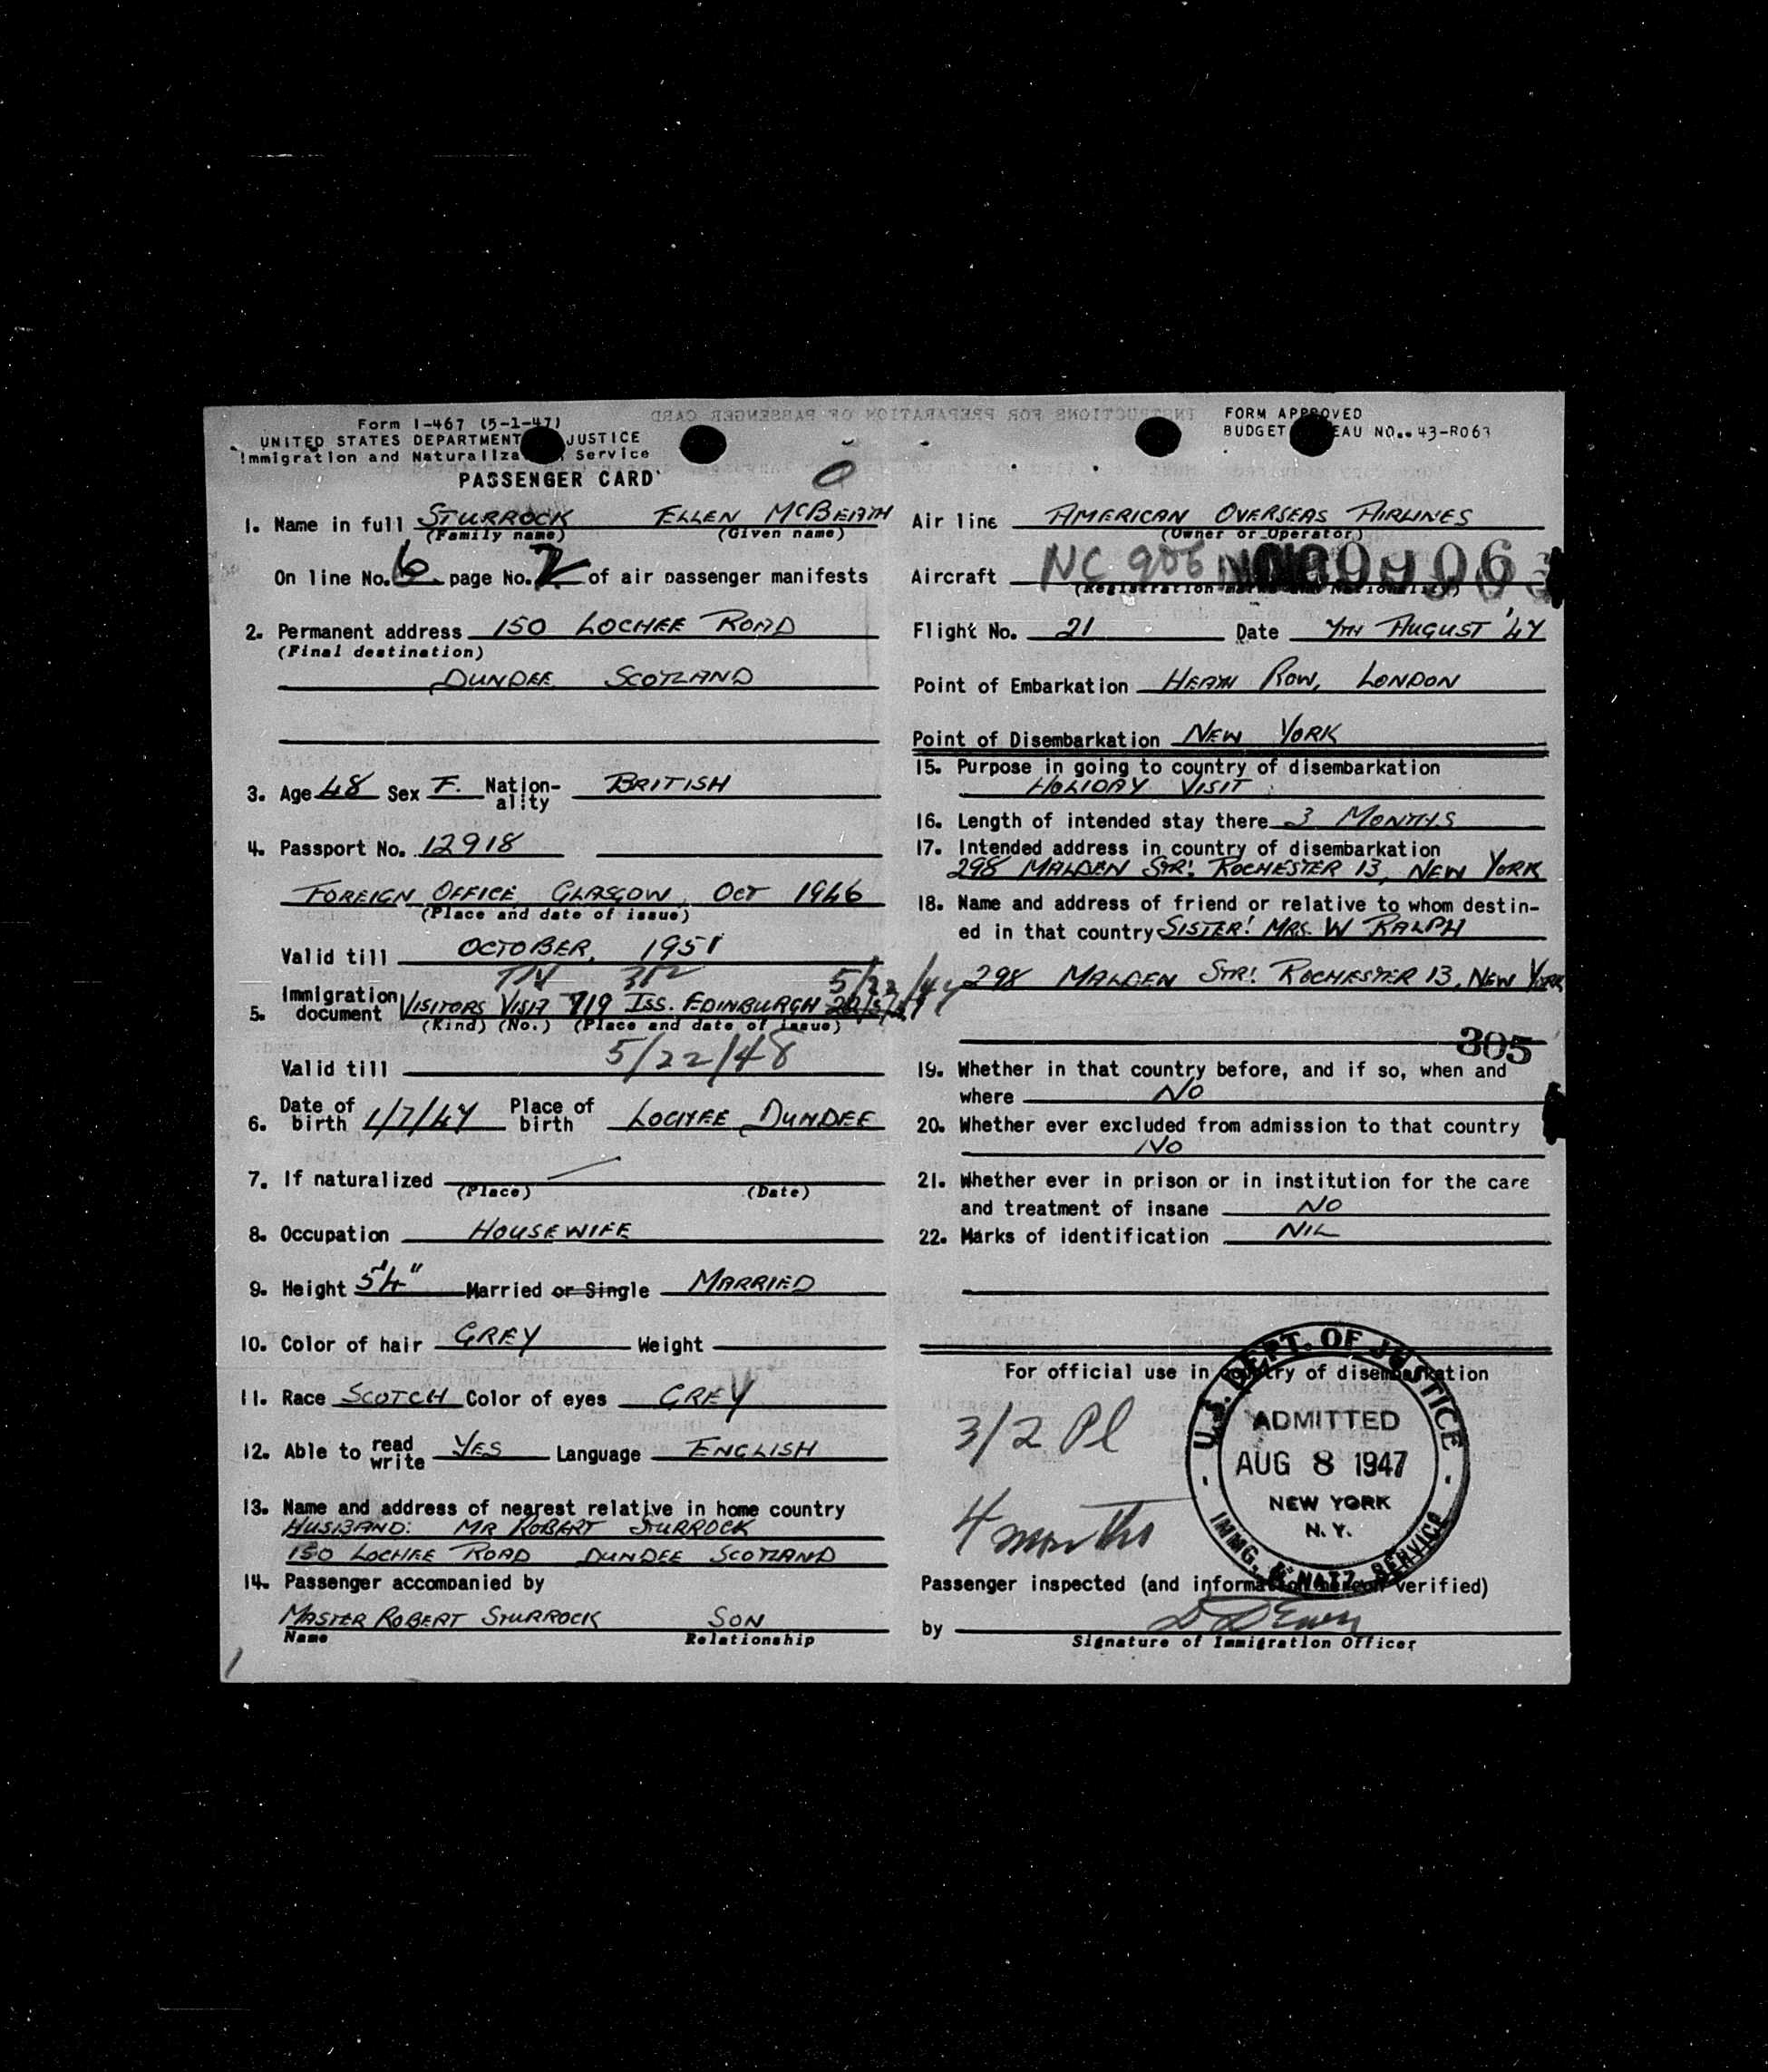 Form I-467 (5-1-47)
UNITED STATES DEPARTMENT JUSTICE
Immigration and Naturaliza Service
PASSENGER CARD
INSTRUCTIONS FOR PREPARATION OF PASSENGER CARD
FORM APPROVED
BUDGET EAU NO. 43-R063
O
1. Name in full STURROCK ELLEN MCBEATH
(Family name) (Given name)
On line No. 6 page No. 2 of air passenger manifests
2. Permanent address 150 LOCHEE ROAD
(Final destination)
DUNDEE SCOTLAND
3. Age 48 Sex F. Nation-ality BRITISH
4. Passport No. 12918
FOREIGN OFFICE GLASGOW, OCT 1946
(Place and date of issue)
Valid till OCTOBER, 1951
5/22/47
5. Immigration document VISITORS VISA 719 ISS. EDINBURGH
(Kind) (No.) (Place and date of issue)
Valid till 5/22/48
6. Date of birth 1/7/47 Place of birth LOCHEE DUNDEE
7. If naturalized
(Place) (Date)
8. Occupation HOUSEWIFE
9. Height 5'4" Married or Single MARRIED
10. Color of hair GREY Weight
11. Race SCOTCH Color of eyes GREY
12. Able to read write YES Language ENGLISH
13. Name and address of nearest relative in home country
HUSBAND: MR ROBERT STURROCK
150 LOCHEE ROAD DUNDEE SCOTLAND
14. Passenger accompanied by
MASTER ROBERT STURROCK SON
Name Relationship
Air line AMERICAN OVERSEAS AIRLINES
(Owner or Operator)
Aircraft NC 906
(Registration marks and Nationality)
Flight No. 21 Date 7TH AUGUST '47
Point of Embarkation HEATH ROW, LONDON
Point of Disembarkation NEW YORK
15. Purpose in going to country of disembarkation
HOLIDAY VISIT
16. Length of intended stay there 3 MONTHS
17. Intended address in country of disembarkation
298 MALDEN STR! ROCHESTER 13, NEW YORK
18. Name and address of friend or relative to whom destin-
ed in that country SISTER! MRS. W RALPH
298 MALDEN STR! ROCHESTER 13, NEW YORK
305
19. Whether in that country before, and if so, when and
where NO
20. Whether ever excluded from admission to that country
NO
21. Whether ever in prison or in institution for the care
and treatment of insane NO
22. Marks of identification NIL
For official use in country of disembarkation
3/2 Pl
4 months
U.S. DEPT. OF JUSTICE
ADMITTED
AUG 8 1947
NEW YORK
N. Y.
IMMG. & NATZ. SERVICE
Passenger inspected (and information hereon verified)
by
Signature of Immigration Officer